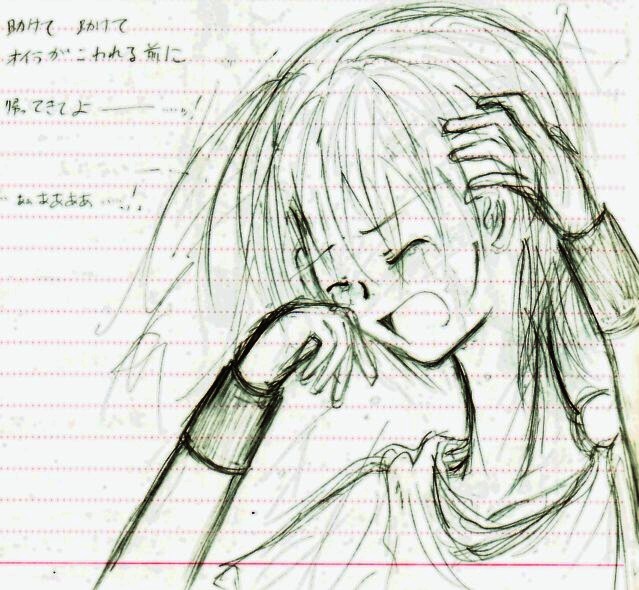 助けて 助けて
オイラがこわれる前に…
帰ってきてよ――…!
ぁぁああああ…!